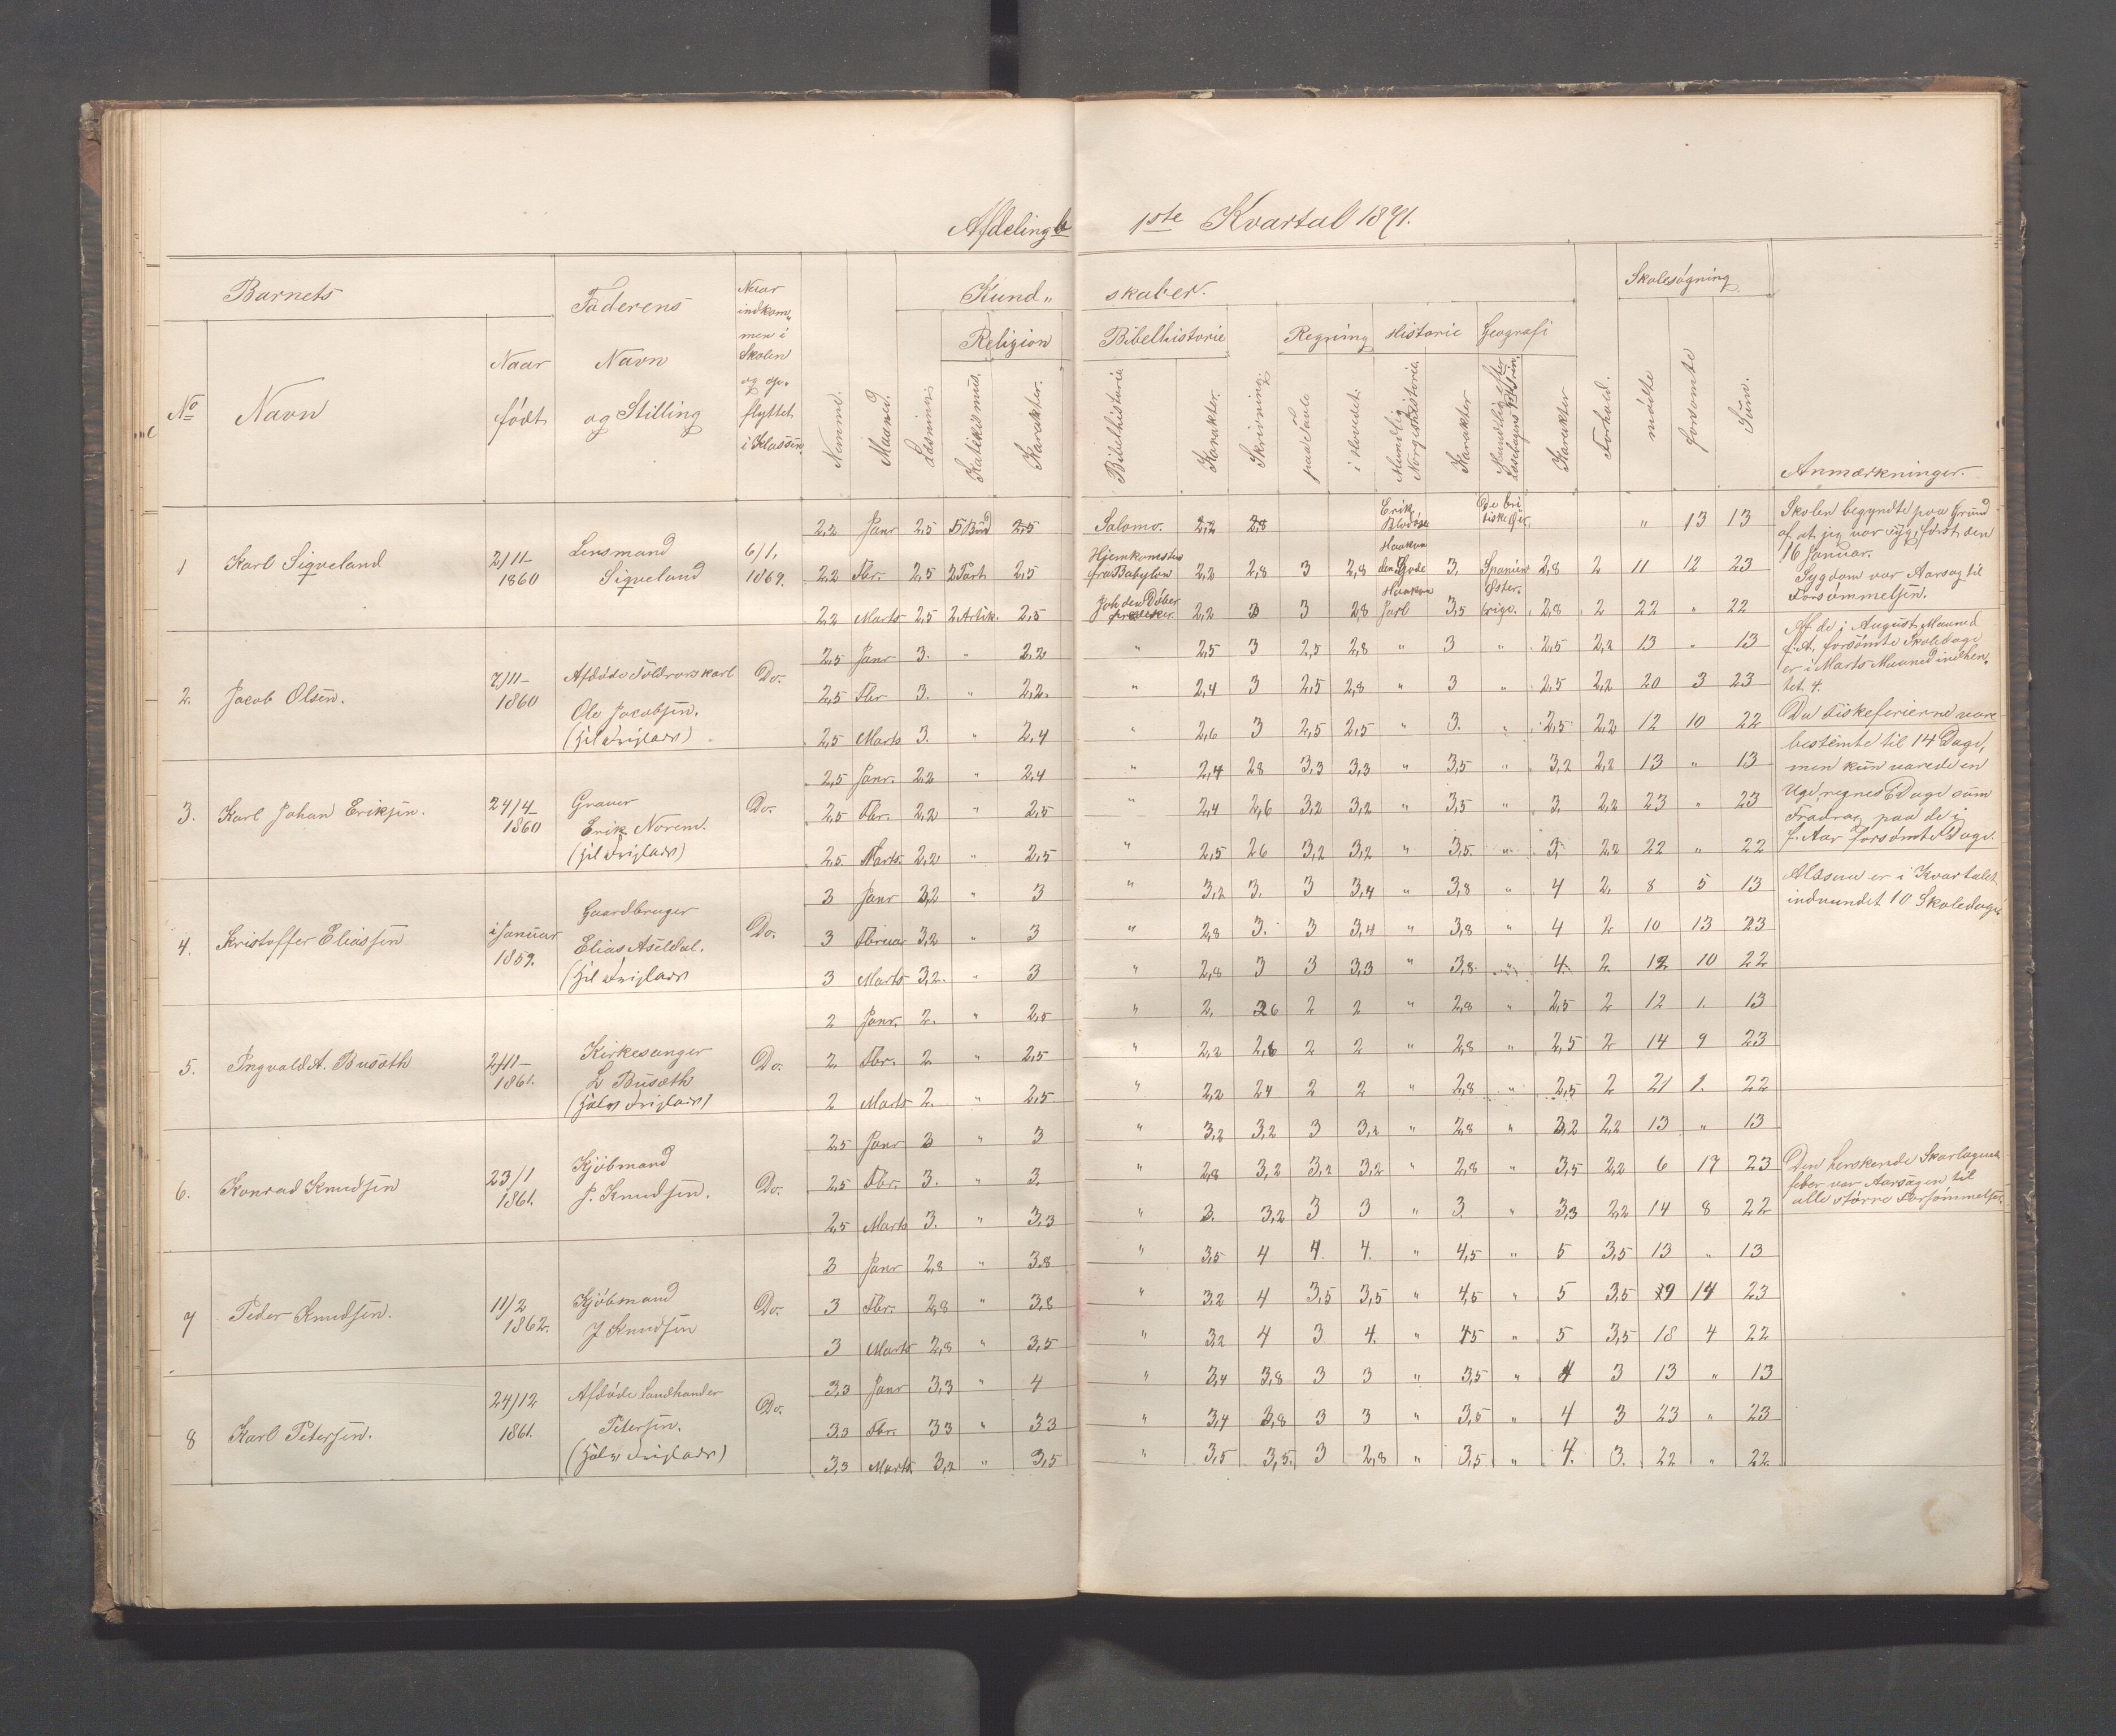 Afdeling b 1ste Kvartal 1871.
Barnets
Faderens
Naar indkom„
men i
Skolen
og op„
flyttet
i Klassen
Kund„ skaber.
Skolesøgning
Religion
Bibelhistorie
Regning
Historie
Geografi
No
Navn
Naar
født
Navn
og Stilling
Nummer.
Maaned.
Læsning
Katekismus.
Karakter.
Bibelhistorie
Karakter.
Skrivning.
paa Tavle
i Hovedet.
Mundtlig
Norgeshistorie
Karakter
Karakter
Forhold.
mødte
forsømte
Sum.
Anmærkninger.
1 Karl Siqveland 2/11– 1860 Lensmand Siqveland 6/1. 1869.
2,2 Janr 2,5 5 Bud 2,5 Salomo. 2,2 2,8 Erik Blodøxe De bri tiske Øer. „ 13 13
2,2 Fbr. 2,5 2 Part 2,5 Hjemkomsten fra Babylon 2,2 2,8 3 2,8 Haakon den Gode 3. Spanien 2,8 2 11 12 23
2,2 Marts 2,5 2 Artik. 2,5 Joh den Døber 2,2 3 3 2,8 Haakon Jarl 3,5 Øster. rige. 2,8 2 22 „ 22
Skolen begyndte paa Grund
af at jeg var syg, først den
16 Januar.
Sygdom var Aarsag til
Forsømmelsen.
2. Jacob Olsen. 7/11– 1860 Afdøde Toldrorskarl Ole Jacobsen. Do.
2,5 Janr 3. „ 2,2 „ 2,5 3 2,5 2,8 „ 3 „ 2,5 2,2 13 „ 13
2,5 Fbr 3. „ 2,2. „ 2,4 3 2,5 2,8 „ 3 „ 2,5 2,2 20 3 23
2,5 Marts 3. „ 2,4 „ 2,6 3 2,5 2,5 „ 3. „ 2,5 2,2 12 10 22
Af de i August Maaned
f. A. forsømte Skoledage
er i Marts Maaned indhen„
tet 4.
Da Fiskeferierne vare
bestemte til 14 Dage,
men kun varede en
Uge regnes 6 Dage som
Fradrag paa de i
f. Aar forsømte Dage.
3. Karl Johan Eriksen. 24/4– 1860 Graver Erik Norem. Do.
2,5 Janr. 2,2 „ 2,4 „ 2,4 28 3,3 3,3 „ 3,5 „ 3,2 2,2 13 „ 13
2,5 Fbr. 2,2 „ 2,5 „ 2,4 2,6 3,2 3,2 „ 3,5 „ 3. 2,2 23 „ 23
2,5 Marts. 2,2 „ 2,5 „ 2,5 26 3,2 3,2 „ 3,5. „ 3. 2,2 22 „ 22
4. Kristoffer Eliassen i Januar 1859. Gaardbruger Elias Aseldal. Do.
3 Janr 3,2 „ 3 „ 3,2 3. 3 3,4 „ 3,8 „ 4 2. 8 5 13
3 Februar 3,2 „ 3 „ 2,8 3. 3 3,4 „ 3,8 „ 4 2 10 13 23
3 Marts 3,2. „ 3 „ 2,8 3 3 3,3 „ 3,8. „ 4. 2. 12 10 22
Altsaa er i Kvartalet
indvundet 10 Skoledage
5. Ingvald A. Busæth 2/11– 1861. Kirkesanger L Busæth Do.
2 Janr. 2. „ 2,5 „ 2. 26 2 2 „ 2,8 „ 2,5 2 12 1. 13
2 Fbr. 2 „ 2,5 „ 2,2 2,6 2 2 „ 2,8 „ 2,5 2 14 9 23
2 Marts 2. „ 2,5 „ 2,2 24 2 2 „ 2,8 „ 2,5 2 21 1. 22
6. Konrad Knudsen 23/1 1861. Kjøbmand J. Knudsen. Do.
2,5 Janr 3 „ 3 „ 3,2 3,2 3 3,2 „ 2,8 „ 3,2 2,2 13 „ 13
2,5 Fbr. 3. „ 3. „ 2,8 3,2 3,2 3,2 „ 2,8 „ 3,5 2,2 6 17 23
2,5 Marts 3. „ 3,3 „ 3. 3,2 3 3 „ 3. „ 3,3 2,2 14 8 22
Den herskende Skarlagens
feber var Aarsagen til
alle større Forsømmelser.
7 Peder Knudsen. 11/2 1862. Kjøbmand J Knudsen Do.
3 Janr 2,8 „ 3.8 „ 3,5 4 4. 4. „ 4,5 „ 5 3,5 13 „ 13
3 Fbr. 2,8 „ 3,8 „ 3,2 4 3,5 3,5 „ 4,5 „ 5 3,5 9 14 23
3 Marts 2,8 „ 3,5 „ 3,2 4 3 4. „ 45 „ 5 3,5 18 4 22
8 Karl Petersen. 24/12 1861. Afdøde Landhandler Petersen. Do.
3,3 Janr 3,3 „ 4 „ 3,4 3,8 3 3 „ 3,5 „ 4 3 13 „ 13
3,3 Fbr. 33 „ 33 „ 3,4 3,8 3 3 „ 3,5 „ 4 3 23 „ 23
3,3 Marts 3,2 „ 3,5 „ 3,5 3,5. 3 2,8 „ 3,5 „ 4. 3. 22 „ 22